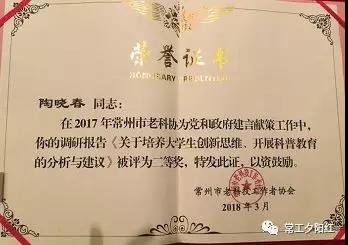 荣誉证书
HONORARY CREDENTIAL
陶晓春 同志：
在2017年常州市老科协为党和政府建言献策工作中，
你的调研报告《关于培养大学生创新思维、开展科普教育
的分析与建议》被评为二等奖，特发此证，以资鼓励。
常州市老科技工作者协会
2018年3月
常工夕阳红